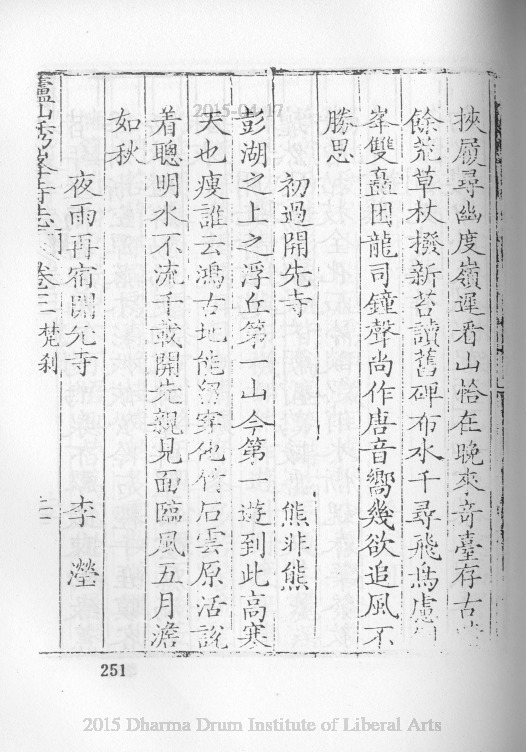 挾屐尋幽度嶺遲看山恰在晚來奇臺存古
餘荒草杖撥新苔讀舊碑布水千尋飛鳥慮
峯雙矗困龍司鐘聲尚作唐音嚮幾欲追風不
勝思
初過開先寺 熊非熊
彭湖之上之浮丘第一山今第一遊到此高寒
天也瘦誰云鴻古地能留穿他竹石雲原活說
着聰明水不流千載開先親見面臨風五月澹
如秋
夜雨再宿開先寺 李瀅
廬山秀峯寺志 卷三 梵刹 二
2015-04-17
251
2015 Dharma Drum Institute of Liberal Arts